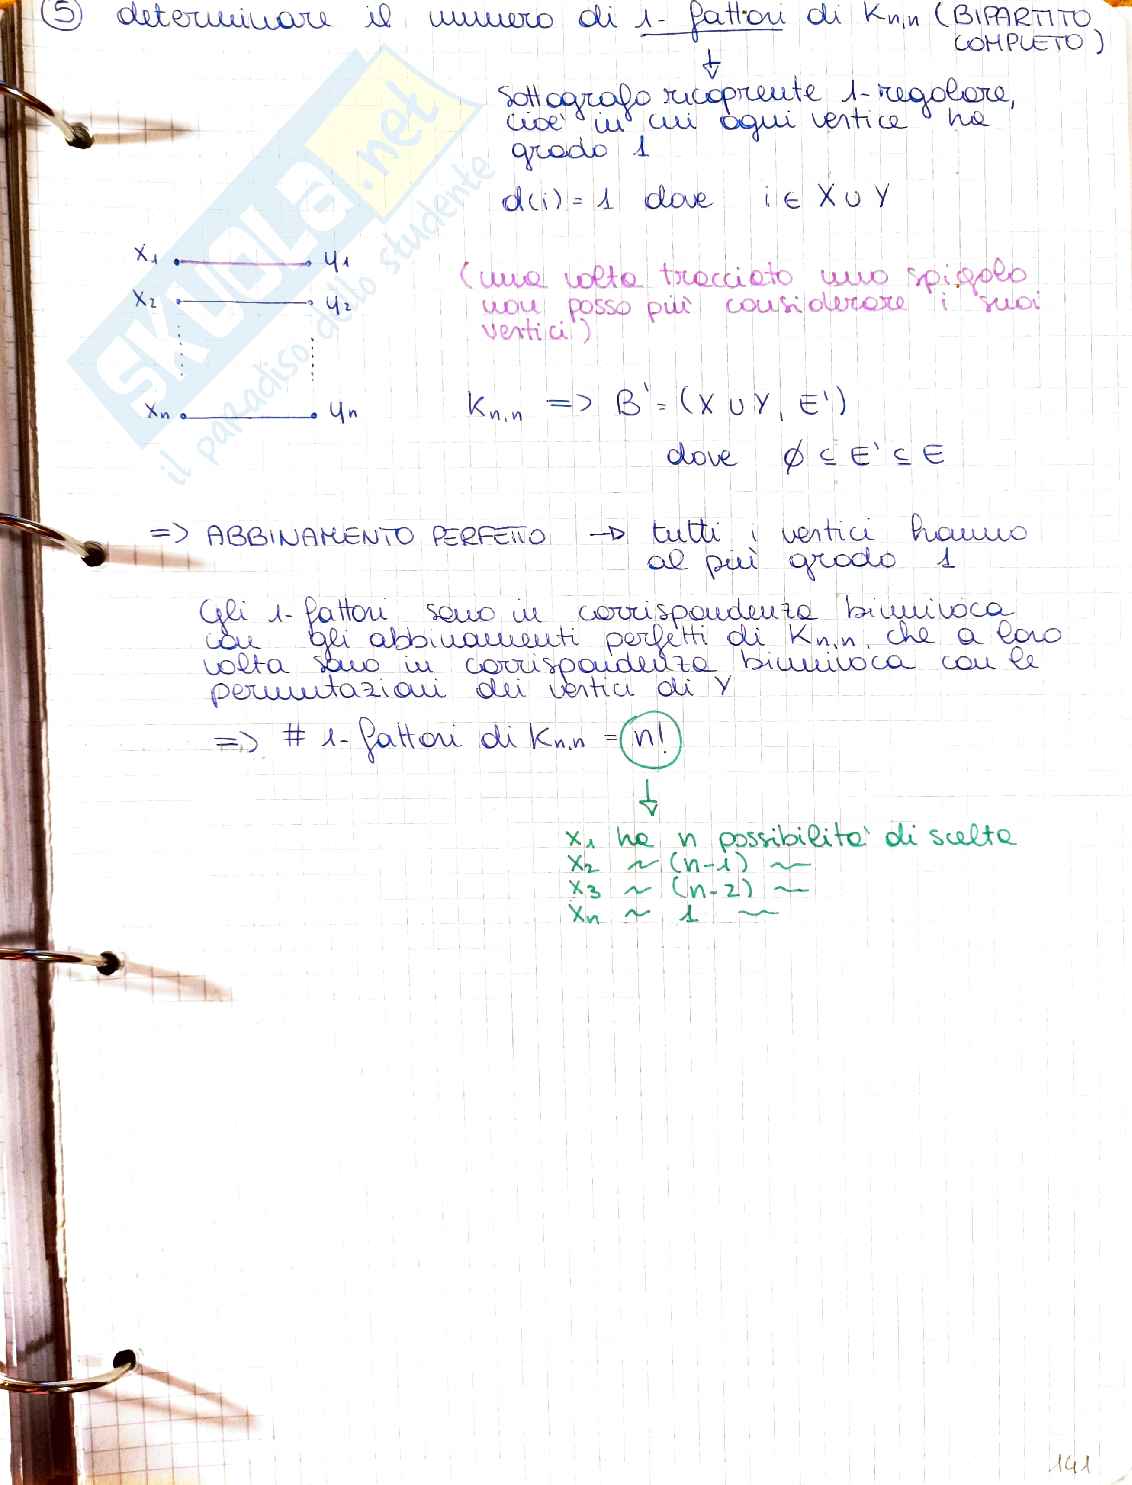 ⑤ determinare il numero di 1-fattori di Kn,n (BIPARTITO
COMPLETO)
sottografo ricoprente 1-regolare,
cioè in cui ogni vertice ha
grado 1
d(i) = 1 dove i ∈ X ∪ Y
x1 y1
x2 y2
xn yn
(una volta tracciato uno spigolo
non posso più considerare i suoi
vertici)
Kn,n => B' = (X ∪ Y, E')
dove ∅ ⊆ E' ⊆ E
=> ABBINAMENTO PERFETTO → tutti i vertici hanno
al più grado 1
Gli 1-fattori sono in corrispondenza biunivoca
con gli abbinamenti perfetti di Kn,n, che a loro
volta sono in corrispondenza biunivoca con le
permutazioni dei vertici di Y
=> # 1-fattori di Kn,n = n!
x1 ha n possibilità di scelta
x2 ~ (n-1) ~
x3 ~ (n-2) ~
xn ~ 1 ~
141
SKUOLA.net
il paradiso dello studente